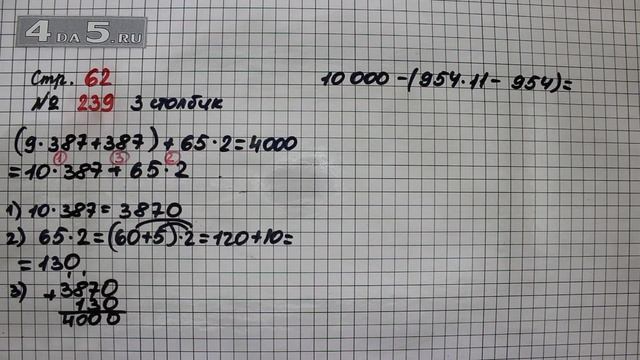 4DA5.RU
Стр. 62
№ 239 3 столбик
(9·387+387)+65·2=4000
=10·387+65·2
1 3 2
1) 10·387=3870
2) 65·2=(60+5)·2=120+10=
=130
3) +3870
130
4000
10 000-(954·11-954)=